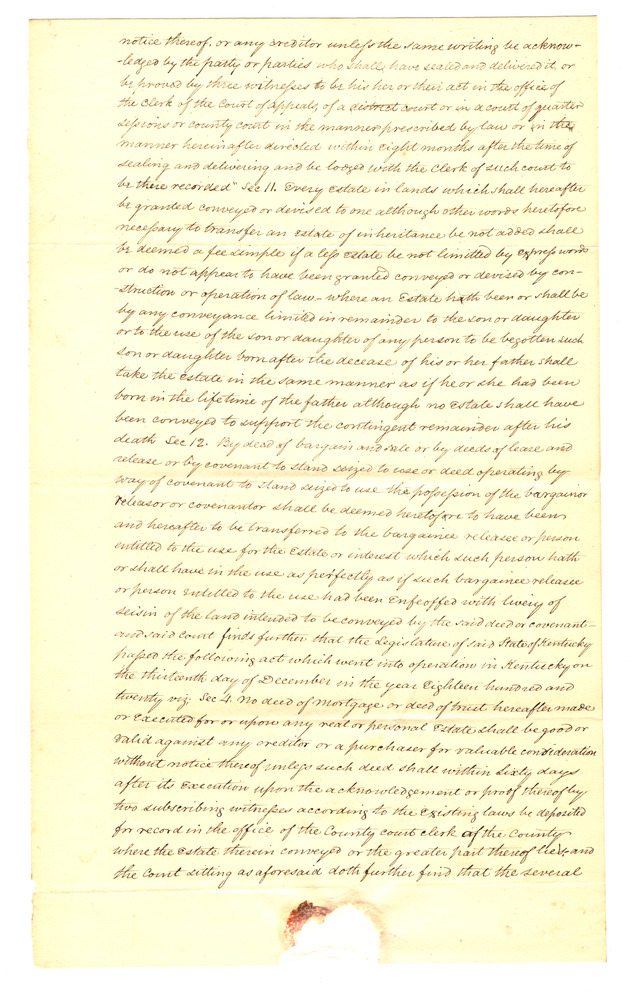 notice thereof, or any creditor unless the same writing be acknow-
-ledged by the party or parties who shall have sealed and delivered it or
be proved by three witnesses to be his her or their act in the office of
the Clerk of the Court of appeals, of a district court or in a court of quarter
sessions or county court in the manner prescribed by law or in the
manner hereinafter directed within eight months after the time of
sealing and delivering and be lodged with the Clerk of such court to
be there recorded" Sec 11. Every Estate in lands which shall hereafter
be granted conveyed or devised to one although other words heretofore
necessary to transfer an Estate of inheritance be not added shall
be deemed a fee simple if a less Estate be not limited by express words
or do not appear to have been granted conveyed or devised by con-
-struction or operation of law - where an Estate hath been or shall be
by any conveyance limited in remainder to the son or daughter
or to the use of the son or daughter of any person to be begotten such
son or daughter born after the decease of his or her father shall
take the Estate in the same manner as if he or she had been
born in the lifetime of the father although no Estate shall have
been conveyed to support the contingent remainder after his
death Sec 12. By deed of bargain and sale or by deeds of lease and
release or by covenant to stand seized to use or deed operating by
way of covenant to stand seized to use the possession of the bargainor
releasor or covenantor shall be deemed heretofore to have been
and hereafter to be transferred to the bargainee releasee or person
entitled to the use for the Estate or interest which such person hath
or shall have in the use as perfectly as if such bargainee releasee
or person entitled to the use had been Enfeoffed with livery of
seisin of the land intended to be conveyed by the said deed or covenant-
and said Court finds further that the Legislature of said State of Kentucky
passed the following act which went into operation in Kentucky on
the thirteenth day of December in the year Eighteen hundred and
twenty viz, Sec 4. No deed of Mortgage or deed of trust hereafter made
or Executed for or upon any real or personal Estate shall be good or
valid against any creditor or a purchaser for valuable consideration
without notice thereof unless such deed shall within sixty days
after its Execution upon the acknowledgement or proof thereof by
two subscribing witnesses according to the Existing laws be deposited
for record in the office of the County court clerk of the County
where the Estate therein conveyed or the greater part thereof lies, and
the Court sitting as aforesaid doth further find that the several